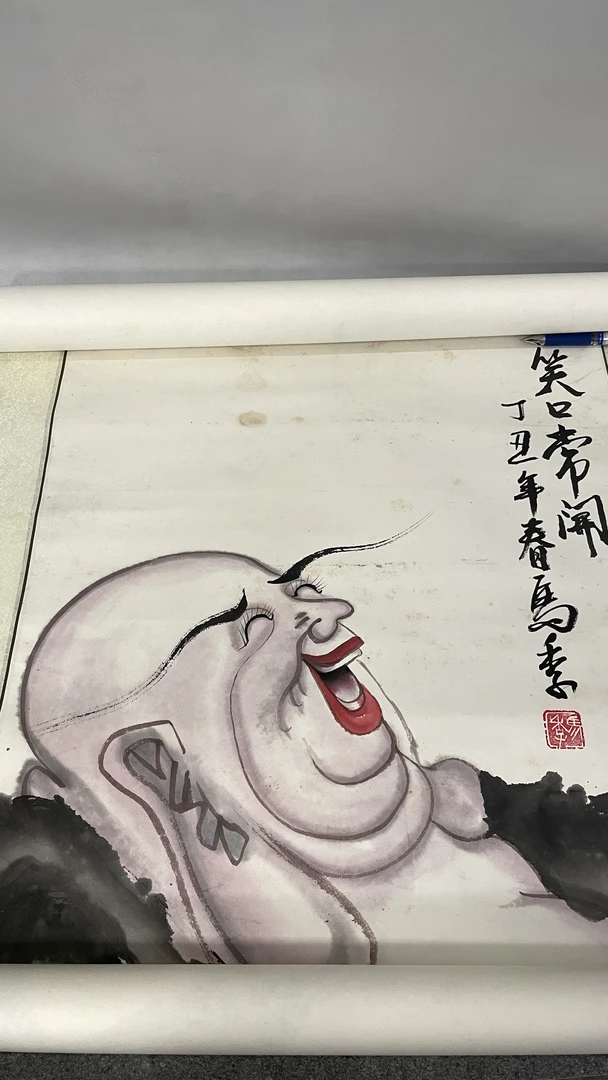 笑口常開
丁丑年春馬季
馬季